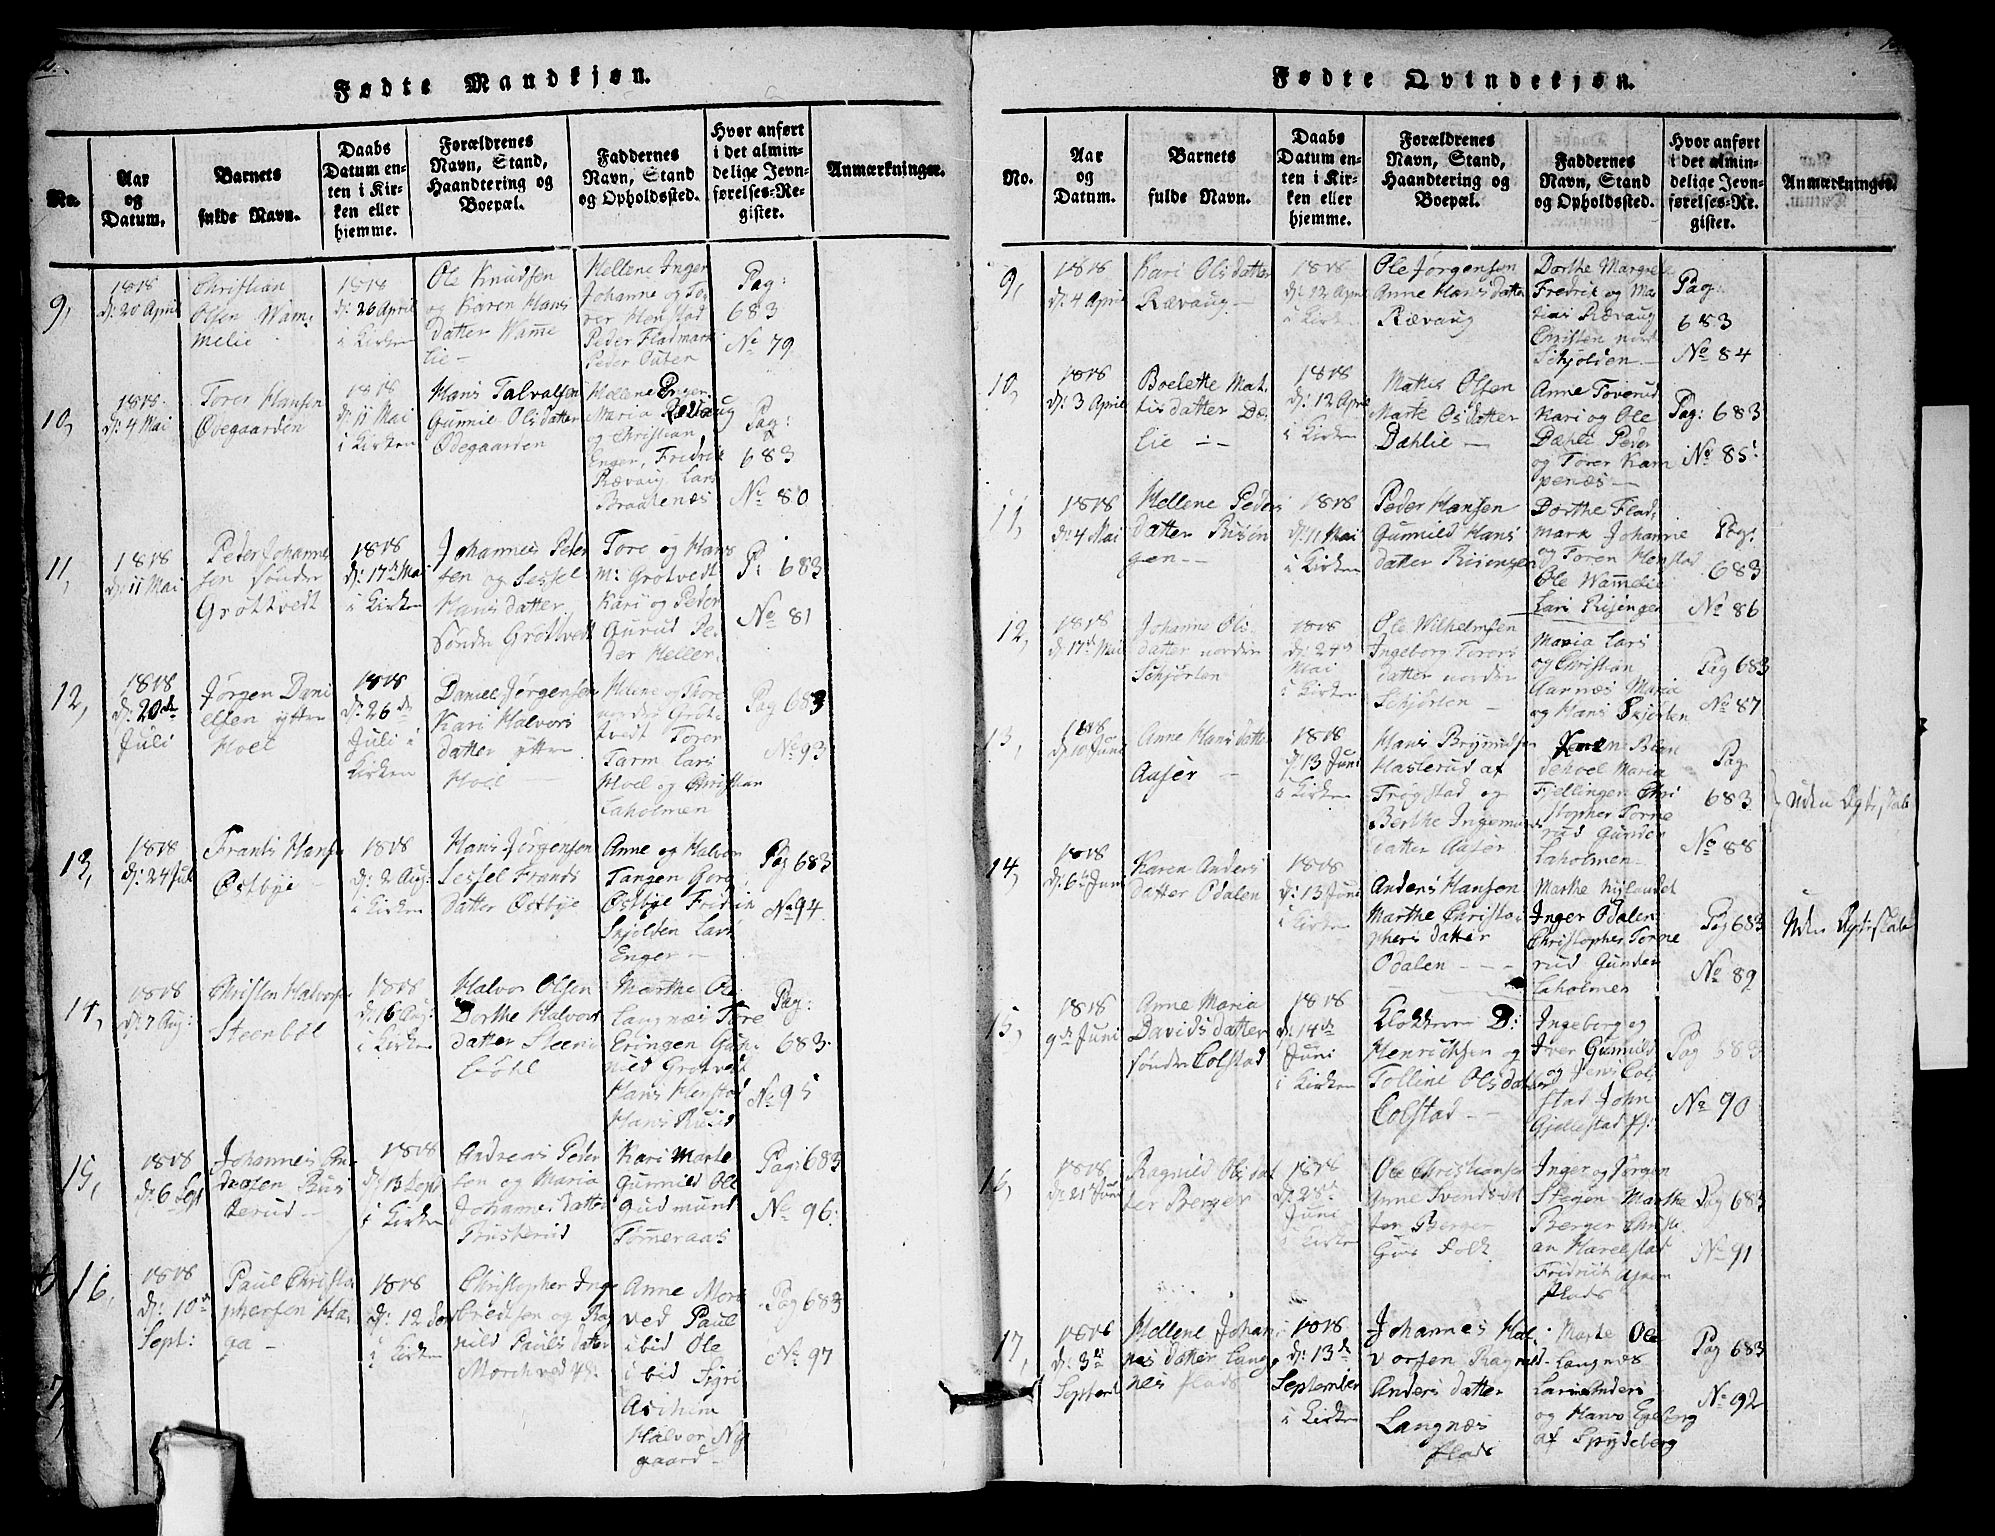 Fødte Mandkjøn.
No.
Aar
og
Datum.
Barnets
fulde Navn.
Daabs
Datum en-
ten i Kir-
ken eller
hjemme.
Forældrenes
Navn, Stand,
Haandtering og
Boepæl.
Faddernes
Navn, Stand
og Opholdssted.
Hvor anført
i det almin-
delige Jevn-
førelses-Re-
gister.
Anmærkninger.
9,
1818
d: 20 April
Christian
Olsen Wam-
melie
1818
d: 26 April
i Kirken
Ole Knudsen
og Karen Hans
datter Wamme
lie -
Hellene Inger
Johanne og To-
rer Henstad
Peder Fladmark
Peder
Pag:
683
No 79
10,
1818
d: 4 Mai
Torer Hansen
Ødegaarden
1818
d: 11 Mai
i Kirken
Hans Talvalsen
Gunnil Olsdatter
Ødegaarden
Hellene
Maria Rævaug
og Christian
Enger, Fridrik
Rævaug Lars
Braatenæs
Pag:
683
No 80
11,
1818
d: 11 Mai
Peder Johannes
sen sønder
Grøttvedt
1818
d: 17de Mai
i Kirken
Johannes Peder
sen og Sessel
Hans datter
Søndr Grøtvedt
Tore og Hans
m: Grøtvedt
Kari og Peder
Gurud Pe-
der Heller
P: 683
No 81
12,
1818
d: 20de
Juli
Jørgen Dani
elsen yttre
Hoel
1818
d: 26de
Juli i
Kirken
Daniel Jørgensen
Kari Halvors
datter yttre
Hoel -
Helene og Tore
nordre Grøt-
vedt Torer
Tarm Lars
Hoel og Christian
Laholmen
Pag 683
No 93
13,
1818
d: 24 Juli
Frants Hanse
Østbye -
1818
d: 2 Aug:
i Kirken
Hans Jørgensen
Sessel Frands
datter Østbye
Anne og Halvor
Tangen Gorg
Østbye Fridrik
Skjolden Lars
Enger -
Pag 683
No 94
14,
1818
d: 7 Aug:
Christen Halvorsen
Steenbøl
1818
d: 16 Aug:
i Kirken
Halvor Olsen
Dorthe Halvors
datter Steen-
bøhl
Marthe Ole
Langnæs Tore
Eringen Gun-
nild Grøtvedt
Hans Henstad
Hans Ruud
Pag:
683.
No 95
15,
1818
d: 6 Sept
Johannes An
dreasen Bus
terud -
1818
d: 13 Sept
i Kirken
Andreas Peder
sen og Maria
Johannes datter
Busterud
Kari Marte
Gunnild Ole
Gudmund
Tømeraas
Pag: 683
No 96:
16,
1818
d: 10de
Sept:
Paul Christo
phersen Ha
ga -
1818
d: 12
i Kirken
Christopher Inge
bredtsen og Rag
nild Pauls datter
Morchved
Anne Mork
ved Paul
ibid Ole
ibid Sigri
Halvor Ny
gaard -
Pag 683
No 97
Fødte Qvindekjøn.
No.
Aar
og
Datum.
Barnets
fulde Navn.
Daabs
Datum en-
ten i Kir-
ken eller
hjemme.
Forældrenes
Navn, Stand,
Haandtering og
Boepæl.
Faddernes
Navn, Stand
og Opholdssted.
Hvor anført
i det almin-
delige Jevn-
førelses-Re-
gister.
Anmærkninger.
9,
1818
d: 4 April
Kari Olsdatter
Rævaug -
1818
d: 12 April
i Kirken
Ole Jørgensen
Anne Hans datter
Rævaug
Dorthe Margrete
Fredrik og Ma
tias Rævaug
Christen nord
Schjolden -
Pag:
683
No 84
10,
1818
d: 3 April
Boelette Mat-
tisdatter Dæ
lie -
1818
d: 12 April
i Kirken
Mattis Olsen
Marte Olsdatter
Dæhlie -
Anne Toverud
Kari og Ole
Dæhli Peder
og Torer Kam
penæs -
Pag: 683
No 85:
11,
1818
d: 4 Mai
Hellene Peders
datter Risøn
gen -
1818
d: 11 Mai
i Kirken
Peder Hansen
Gunnild Hans
datter Riisengen
Dorthe Flad-
mark Johanne
og Toren Henstad
Ole Wammelie
Lars Risengen
Pag:
683
No 86
12,
1818
d: 17de Mai
Johanne Ols-
datter norden
Schjørten
1818
d: 24de
Mai
i Kirken
Ole Wilhelmsen
Ingeborg Torers
datter norden
Schjørten -
Maria Lars
og Christian
Aarnæs Maria
og Hans Skjørten
Pag 683
No 87
13,
1818
d: 10 Juni
Anne Hans datter
Aaser -
1818
d: 13 Juni
i Kirken
Hans Brynildsen
Hasterud af
Trøgstad og
Berthe Ingemunds
datter Aaser
dehoel Maria
Fjellingen Chri
stopher Torne
rud Gunder
Laholmen -
Pag.
683
No 88
Uden Ægteskab
14,
1818
d: 6te Juni
Karen Anders
datter Odalen
1818
d: 13 Juni
i Kirken
Anders Hansen
Marthe Christo-
phers datter
Odalen - -
Marthe Nylandet
Inger Odalen
Christopher Torne
rud Gunder
Laholmen
Pag 683
No 89
Uden Ægteskab
15,
1818
9de Juni
Anne Maria
Davids datter
sønder Colstad
1818
d: 14de
Juni
i Kirken
Klokkeren D:
Henrichsen og
Tolline Olsdatter
Colstad - -
Ingeborg og
Iver Gunnild
og Jens Col-
stad John
Gjellestad
Pag 683
No 90
16,
1818
d: 21de Juni
Ragnild Olsdat
ter Berger
1818
d: 28de
Juni
i Kirken
Ole Christiansen
Anne Svendsdat
ter Berger
Huusfolk
Inger og Jørgen
Stegen Marthe
Berger Christi-
an Harelstad
Fridrich
Plads
Pag 683
No 91
17,
1818
d: 3de
September
Hellene Johan-
nes datter Lang-
næs Plads
1818
d: 13de
September
i Kirken
Johannes Hal-
vorsen Ragnild
Anders datter
Langnæs
Plads
Marte Ole
Langnæs
Lars Anders
og Hans Egeberg
af Spydeberg
Pag 683
No 92